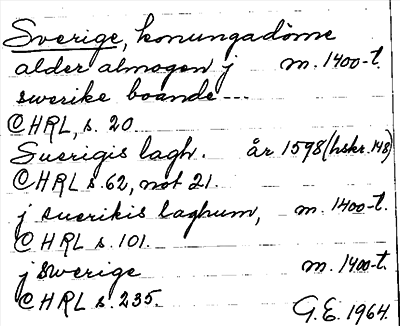 Sverige, konungadöme
alder almogen j m. 1400-t.
swerike boande---
CHRL, s. 20
Suerigis lagh. år 1598 (hskr. 148)
CHRL s. 62, not 21.
j suerikis laghum, m. 1400-t.
CHRL s. 101.
j swerige m. 1400-t.
CHRL s. 235.
G.E. 1964.